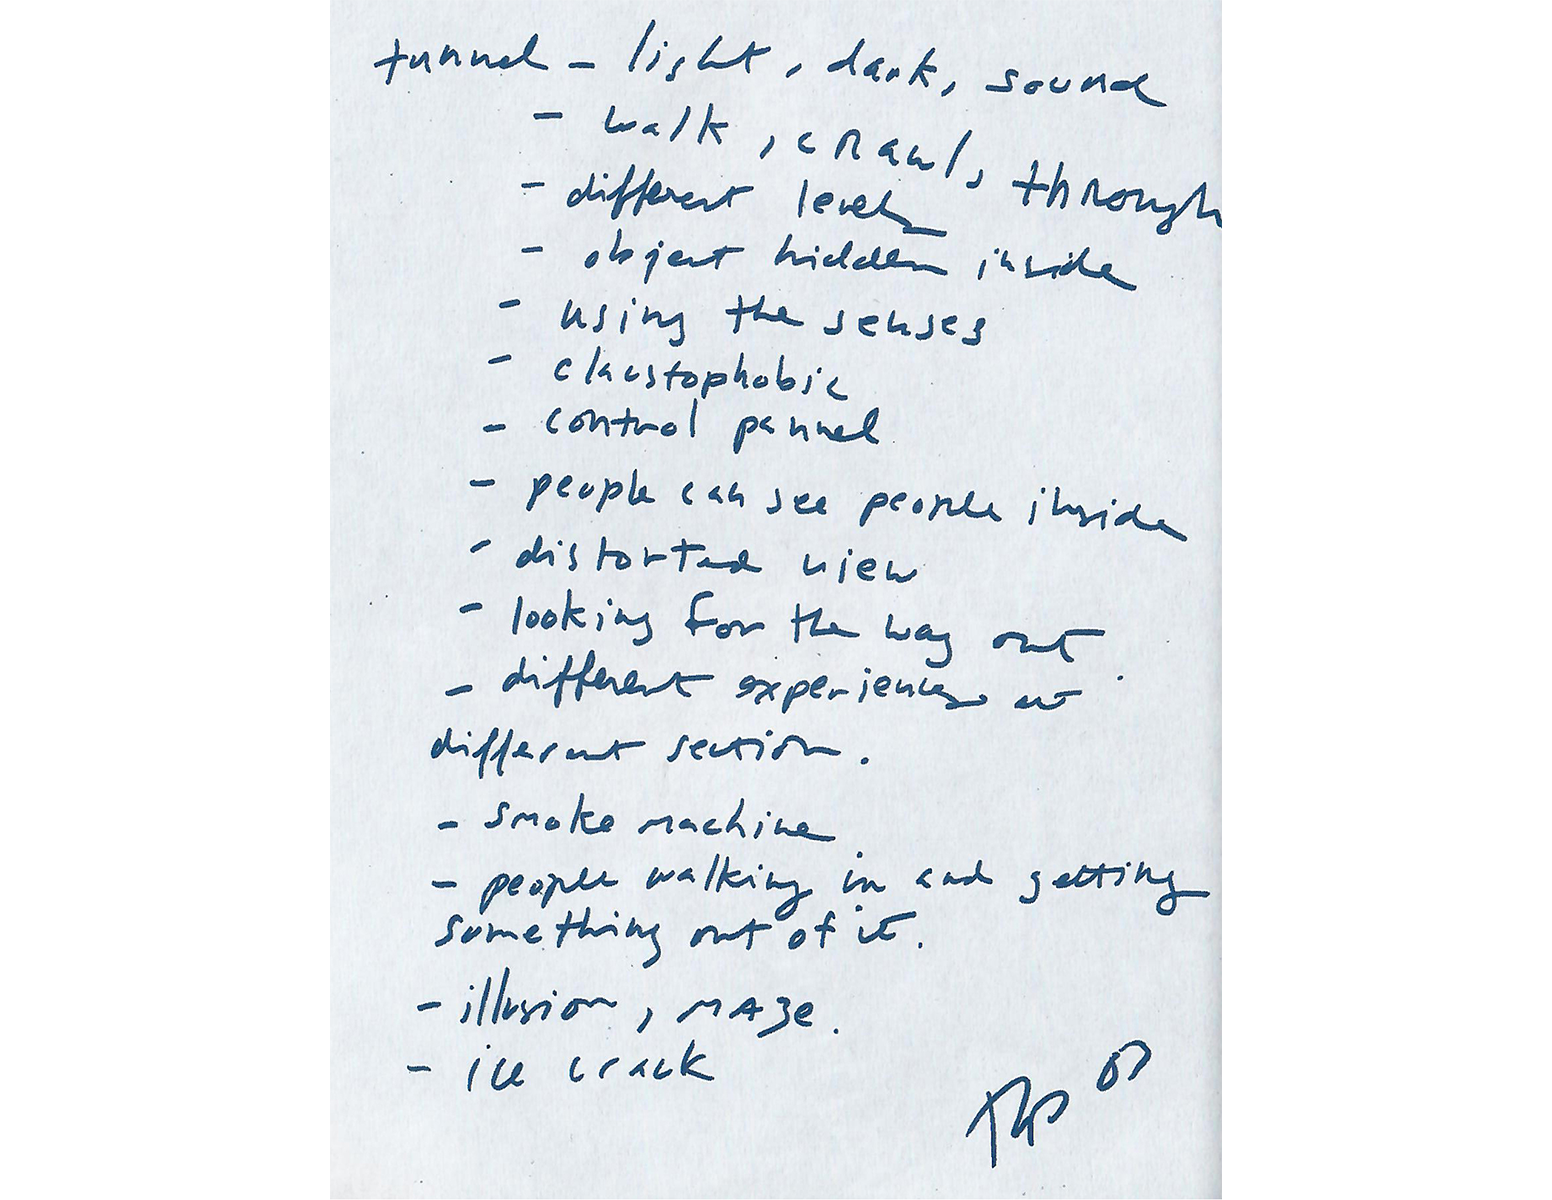 tunnel - light, dark, sound
- walk, crawl, through
- different levels
- object hidden inside
- using the senses
- claustophobic
- control pannel
- people can see people inside
- distorted view
- looking for the way out
- different experiences at
different section.
- smoke machine
- people walking in and getting
something out of it.
- illusion, MAZe.
- ice crack
07